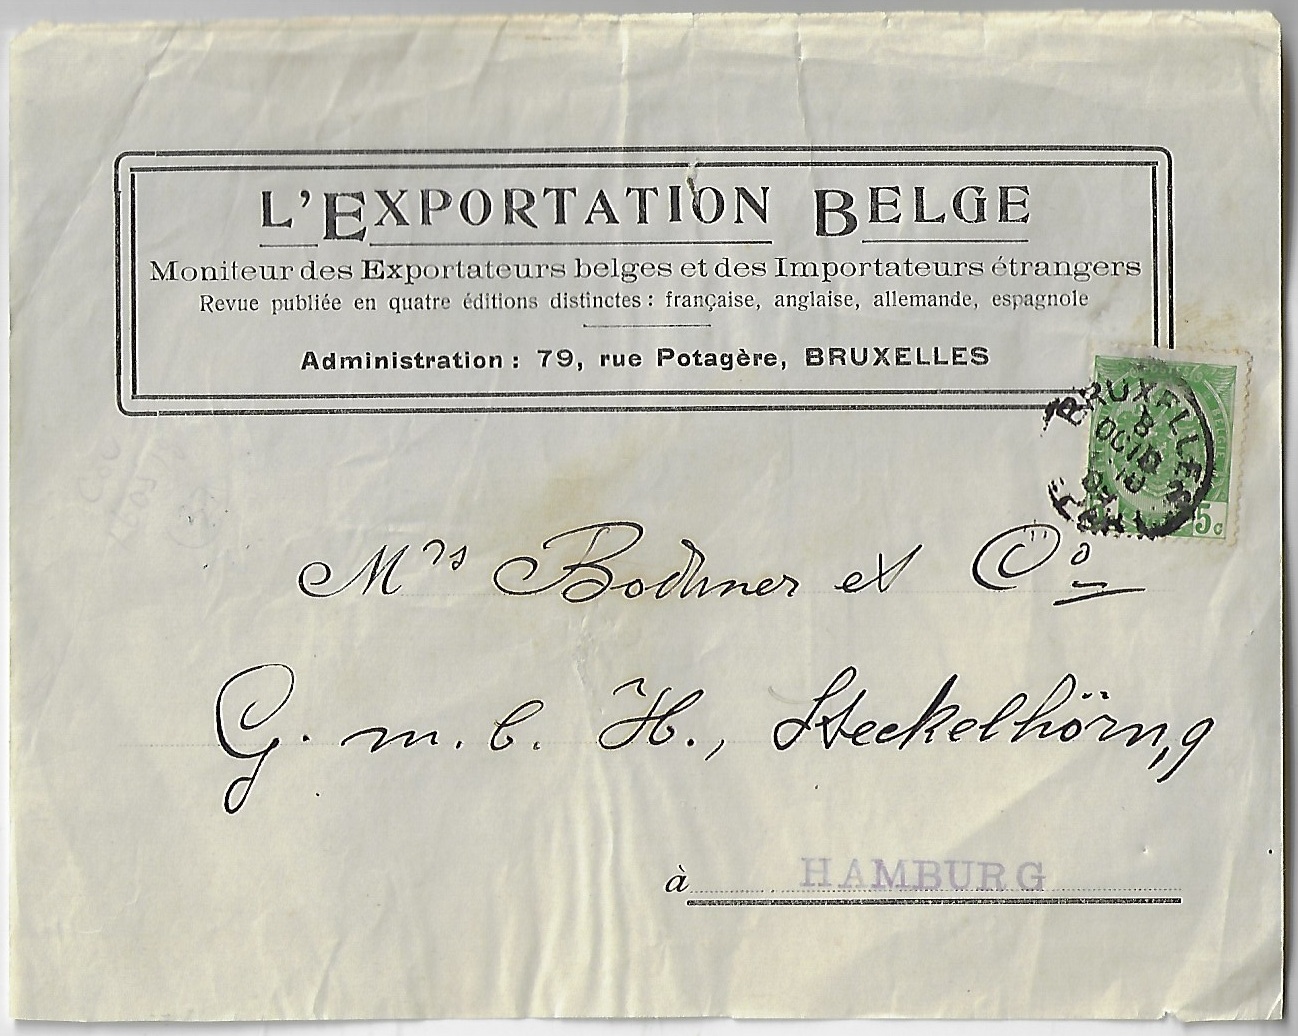 L'EXPORTATION BELGE
Moniteur des Exportateurs belges et des Importateurs étrangers
Revue publiée en quatre éditions distinctes : française, anglaise, allemande, espagnole
Administration : 79, rue Potagère, BRUXELLES
BRUXELLES
8
OCT
BELGIE
5c
Mrs Bodmer et Co
G. m. b. H., Steckelhörn, 9
à HAMBURG